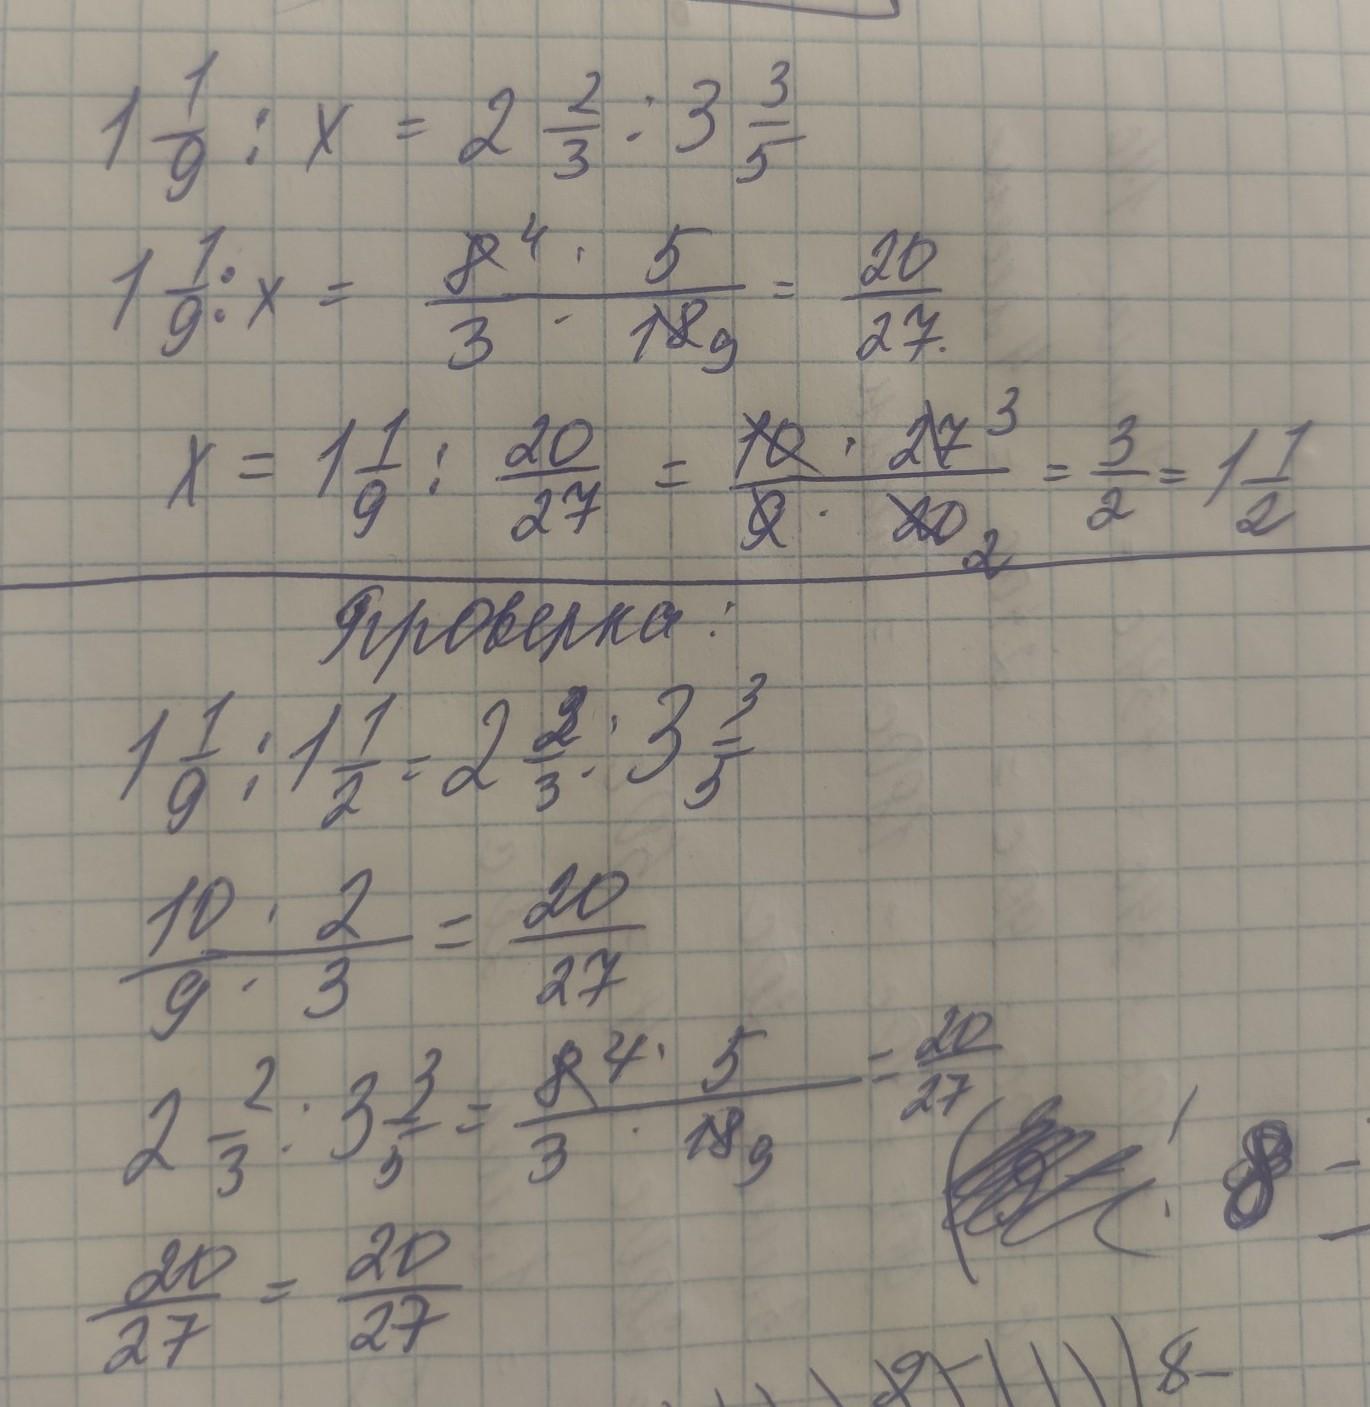 1 1/9 : x = 2 2/3 : 3 3/5
1 1/9 : x = 8 4 · 5 / 3 · 18 9 = 20/27.
x = 1 1/9 : 20/27 = 10 · 27 3 / 9 · 20 2 = 3/2 = 1 1/2
Проверка:
1 1/9 : 1 1/2 = 2 2/3 : 3 3/5
10 · 2 / 9 · 3 = 20/27
2 2/3 : 3 3/5 = 8 4 · 5 / 3 · 18 9 = 20/27
: 8 -
20/27 = 20/27
8-